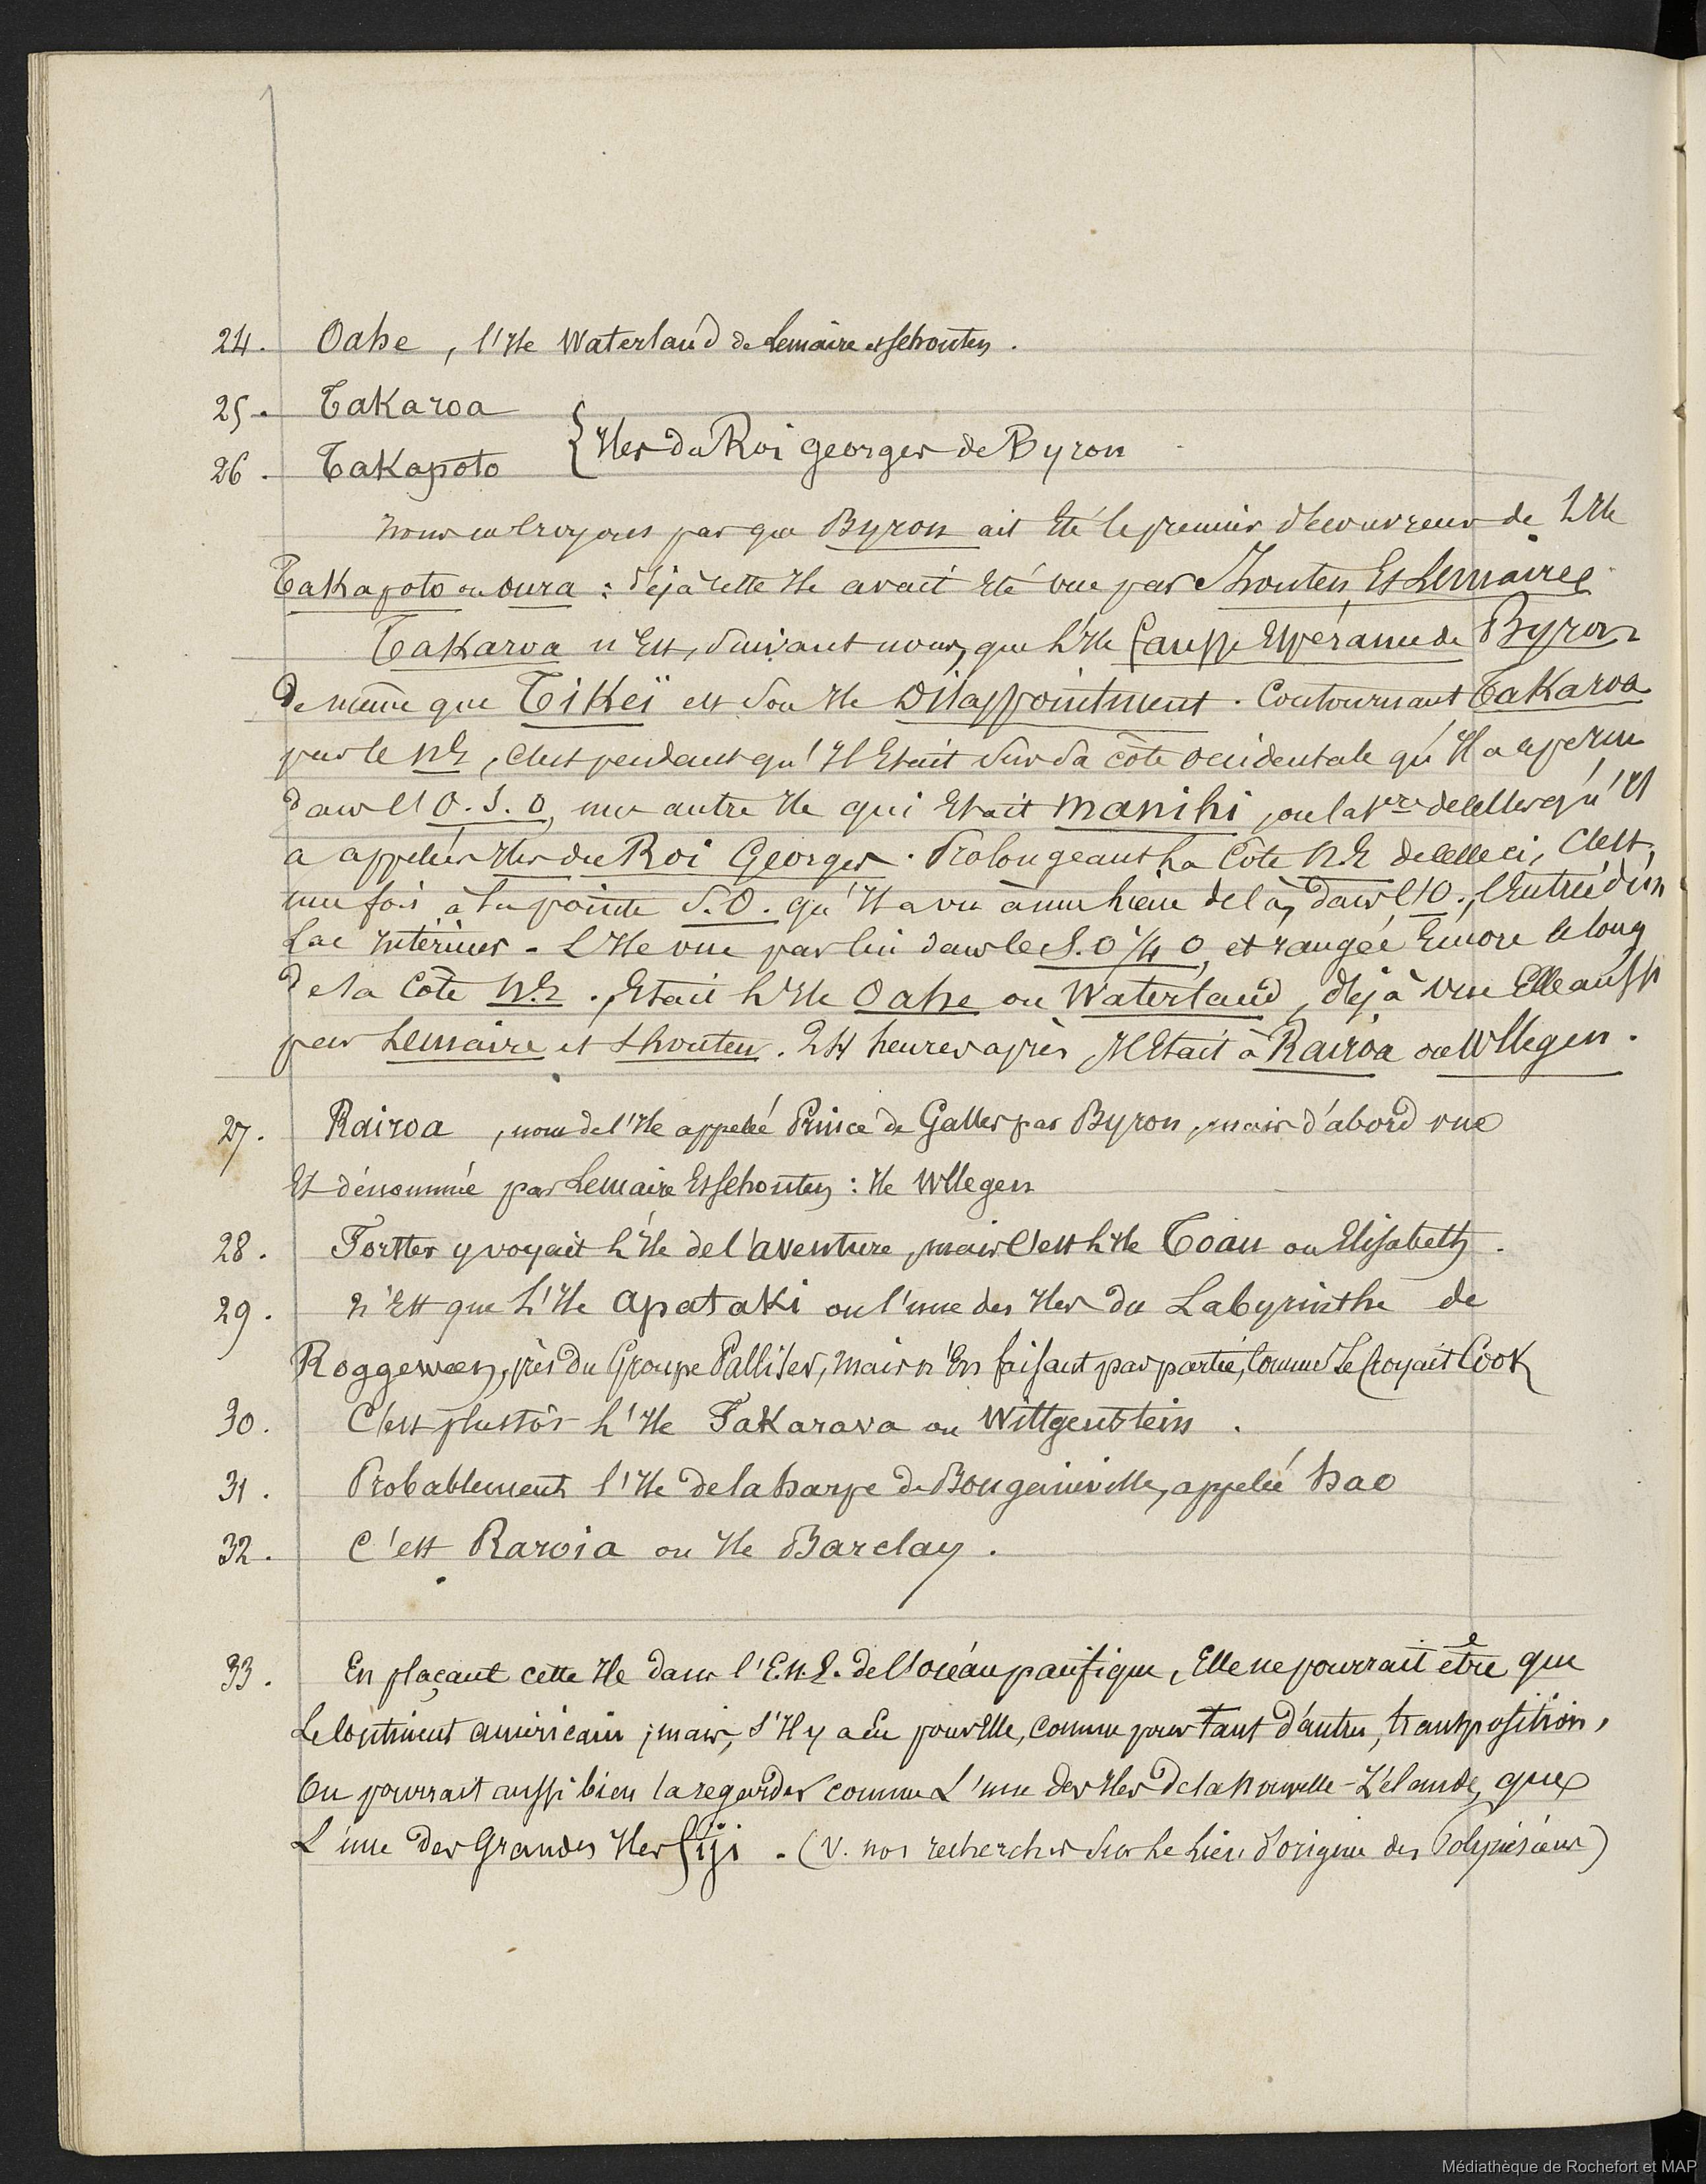 24. Oahe, l'Ile Waterland de Lemaire et Schouten.
25. Takaroa
26. Takapoto { Iles du Roi Georges de Byron
nous ne croyons pas que Byron ait été le premier découvreur de l'Ile
Takapoto ou oura : déjà cette Ile avait été vue par Shouten Et Lemaire
Takaroa n'Est, suivant nous, que l'Ile fausse Espérance de Byron
de même que Tikeï est son Ile Disappointment. Contournant Takaroa
par le N.E, c'est pendant qu'Il Etait sur sa côte occidentale qu'Il a aperçu
dans l'O.S.O, une autre Ile qui Etait Manihi, ou la 1re de celles qu'Il
a appelées Iles du Roi Georges. Prolongeant la Côte N.E de celle ci, C'est,
une fois à la pointe S.O. qu'Il a vu à une lieue de là, dans l'O., l'Entrée d'un
Lac Intérieur. L'Ile vue par lui dans le S.O ¼ O, et rangée Encore le long
de la Côte N.E., Etait l'Ile Oahe ou Waterland, déjà vue Elle aussi
par Lemaire et Shouten. 24 heures après, Il Etait à Rairoa ou Wllegen.
27. Rairoa, nom de l'Ile appelée Prince de Galles par Byron, mais d'abord vue
Et dénommée par Lemaire Et Schouten : Ile Wllegen
28. Forster y voyait l'Ile de l'aventure, mais C'est l'Ile Toau ou Elisabeth.
29. n'Est que l'Ile Apataki ou l'une des Iles du Labyrinthe de
Roggeween, près du Groupe Palliser, mais n'En faisant pas partie, Comme Le Croyait Cook
30. C'est plustôt l'Ile Fakarava ou Wittgenstein.
31. Probablement l'Ile de la harpe de Bougainville, appelée hao
32. C'est Raroia ou Ile Barclay.
33. En plaçant cette Ile dans l'E.N.E. de l'océan pacifique, Elle ne pourrait être que
Le Continent américain ; mais, s'Il y a Eu pour Elle, comme pour tant d'autres, transposition,
On pourrait aussi bien la regarder comme L'une des Iles de la nouvelle-Zélande, que
L'une des Grandes Iles fiji. (V. nos recherches sur le Lieu d'origine des Polynésiens)
Médiathèque de Rochefort et MAP